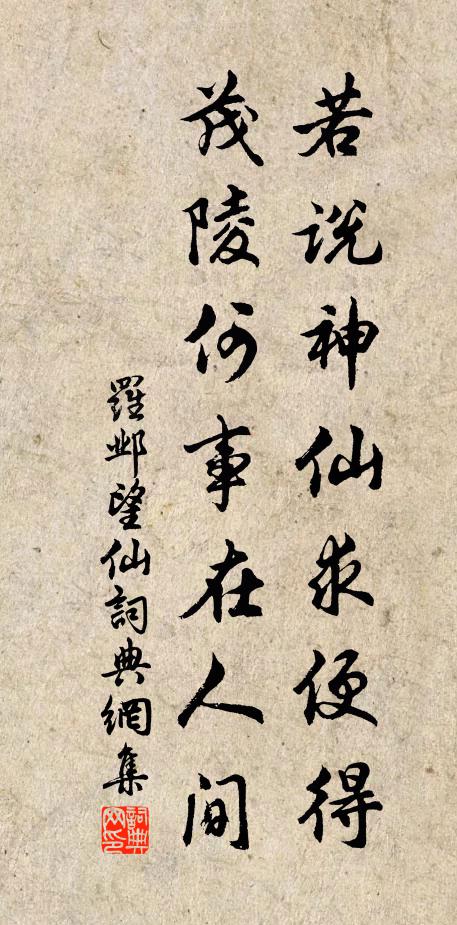 若说神仙求便得
茂陵何事在人间
羅邺望仙詞典網集
詞典网印